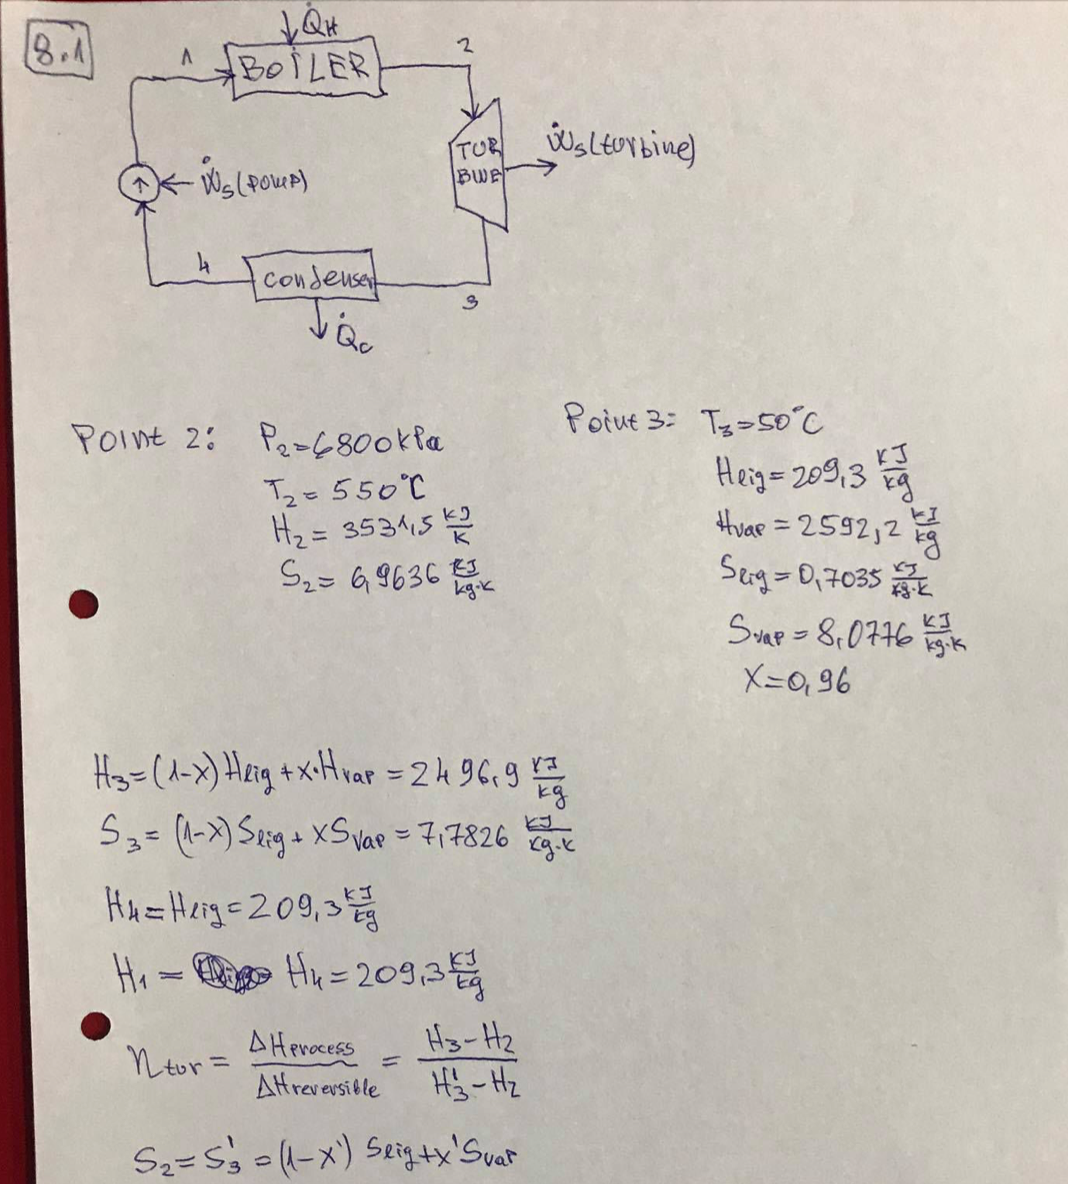 8.1
Q̇H
1
BOİLER
2
TUR
BWE
Ẇs(turbine)
Ẇs(PUMP)
4
condenser
3
Q̇c
Point 2: P2=6800kPa
T2= 550°C
H2= 3531,5 kJ/K
S2= 6,9636 kJ/kg·K
Point 3: T3=50°C
Hlig=209,3 kJ/kg
Hvap=2592,2 kJ/kg
Slig=0,7035 kJ/kg·K
Svap=8,0776 kJ/kg·K
X=0,96
H3=(1-X)Hlig+x·Hvap=2496,9 kJ/kg
S3=(1-X)Slig+xSvap=7,7826 kJ/kg·K
H4=Hlig=209,3 kJ/kg
H1= H4=209,3 kJ/kg
ηtur= ΔHprocess/ΔHreversible = H3-H2/H3'-H2
S2=S3'=(1-x')Slig+x'Svap